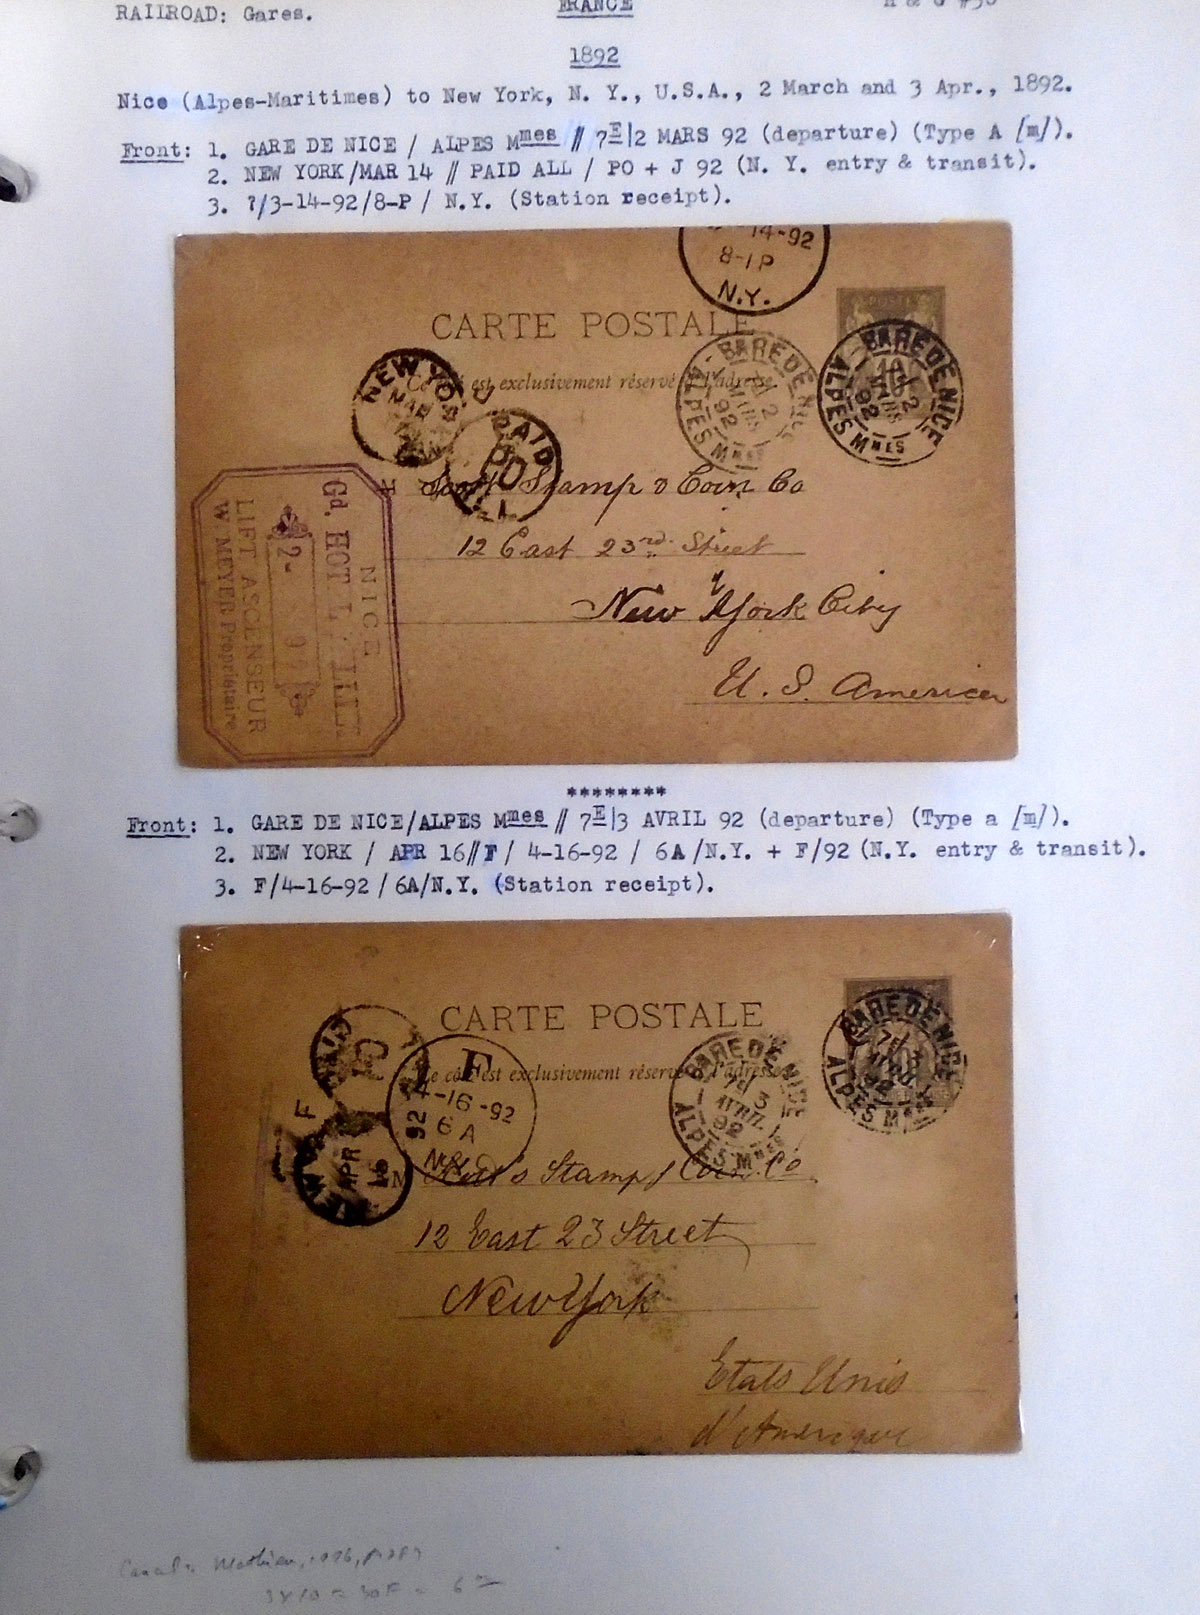 RAILROAD: Gares. FRANCE
1892
Nice (Alpes-Maritimes) to New York, N. Y., U.S.A., 2 March and 3 Apr., 1892.
Front: 1. GARE DE NICE / ALPES Mmes // 7E|2 MARS 92 (departure) (Type A [m/).
2. NEW YORK/MAR 14 // PAID ALL / PO + J 92 (N. Y. entry & transit).
3. ?/3-14-92/8-P / N.Y. (Station receipt).
14-92
8-1P
N.Y.
CARTE POSTALE
POSTE
Ce côté est exclusivement réservé à l'adresse
NEW YO
MAR
PAID
GARE DE NICE
2
MARS
92
ALPES Mmes
GARE DE NICE
2
MARS
92
ALPES Mmes
Scott Stamp & Coin Co
12 East 23rd Street
New York City
U. S. America
NICE
Gd. HOT
2- 92
LIFT ASCENSEUR
W MEYER Propriétaire
********
Front: 1. GARE DE NICE/ALPES Mmes // 7E|3 AVRIL 92 (departure) (Type a [m/).
2. NEW YORK / APR 16//F/ 4-16-92 / 6A/N.Y. + F/92 (N.Y. entry & transit).
3. F/4-16-92 / 6A/N.Y. (Station receipt).
CARTE POSTALE
Ce côté est exclusivement réservé à l'adresse
F
4-16-92
6 A
N.Y.
92
F
NEW
APR
16
GARE DE NICE
7E 3
AVRIL
92
ALPES Mmes
GARE DE NICE
7E
92
ALPES Mmes
M Scott's Stamp & Coin Co
12 East 23 Street
New York
Etats Unis
d'Amerique
Mathieu,